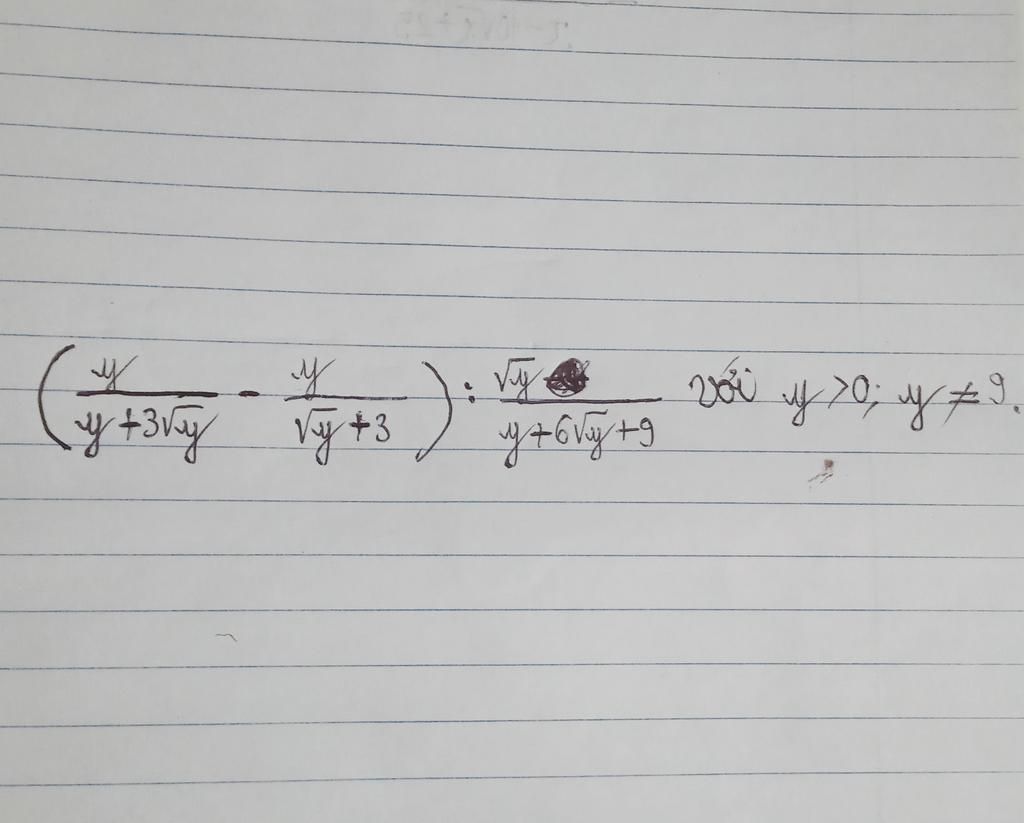 (y/(y+3√y) - y/(√y+3)) : √y/(y+6√y+9) với y>0; y≠9.